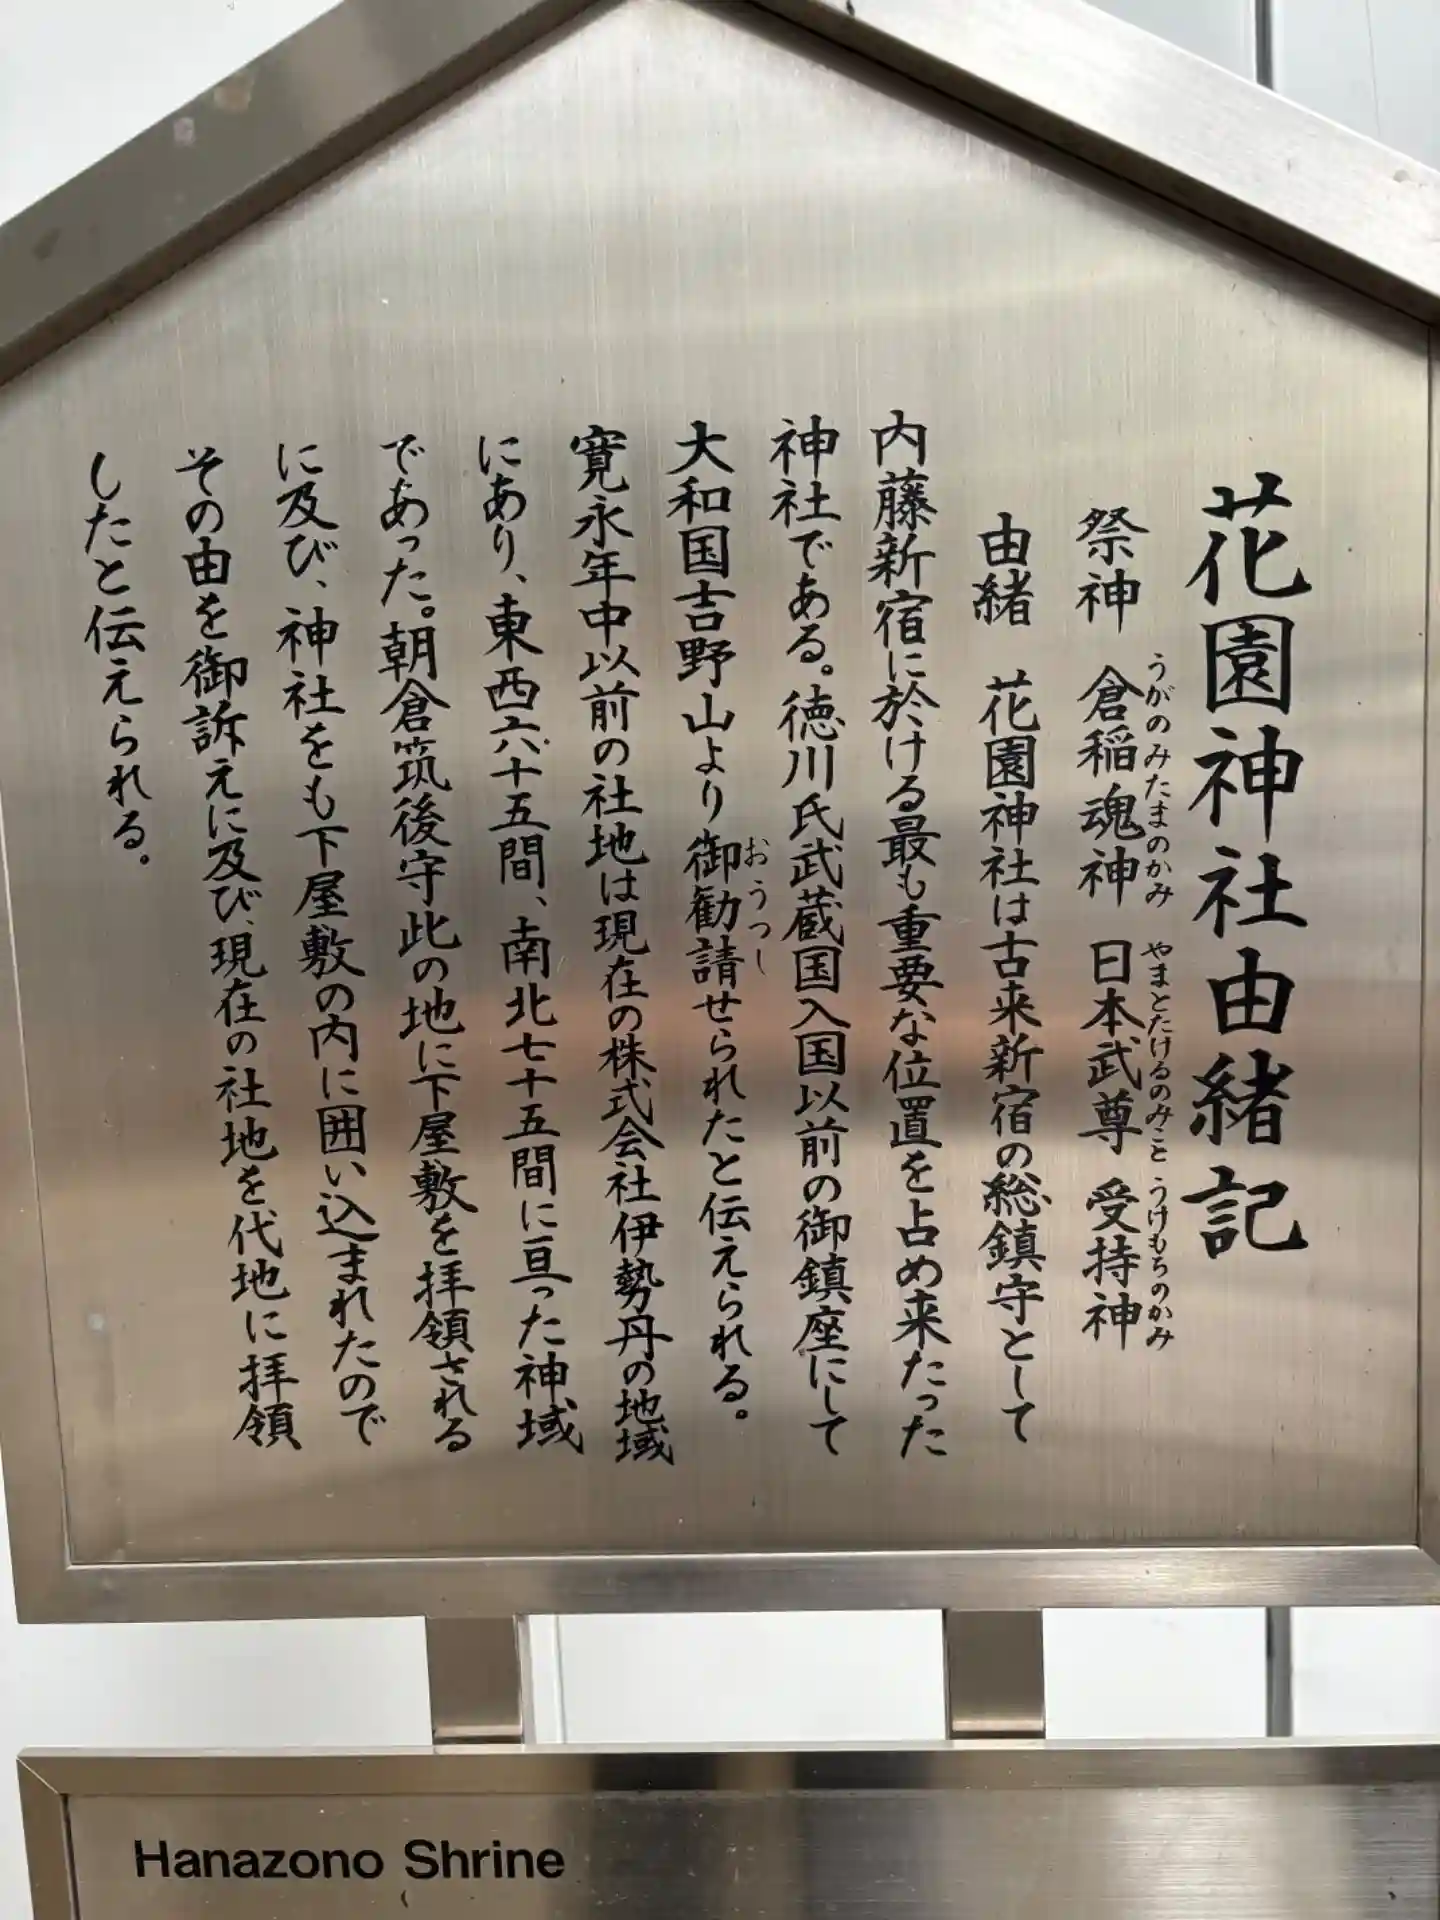 花園神社由緒記
祭神 倉稲魂神 日本武尊 受持神
うがのみたまのかみ やまとたけるのみこと うけもちのかみ
由緒 花園神社は古来新宿の総鎮守として
内藤新宿に於ける最も重要な位置を占め来たった
神社である。徳川氏武蔵国入国以前の御鎮座にして
大和国吉野山より御勧請せられたと伝えられる。
おうつし
寛永年中以前の社地は現在の株式会社伊勢丹の地域
にあり、東西六十五間、南北七十五間に亘った神域
であった。朝倉筑後守此の地に下屋敷を拝領される
に及び、神社をも下屋敷の内に囲い込まれたので
その由を御訴えに及び、現在の社地を代地に拝領
したと伝えられる。
Hanazono Shrine